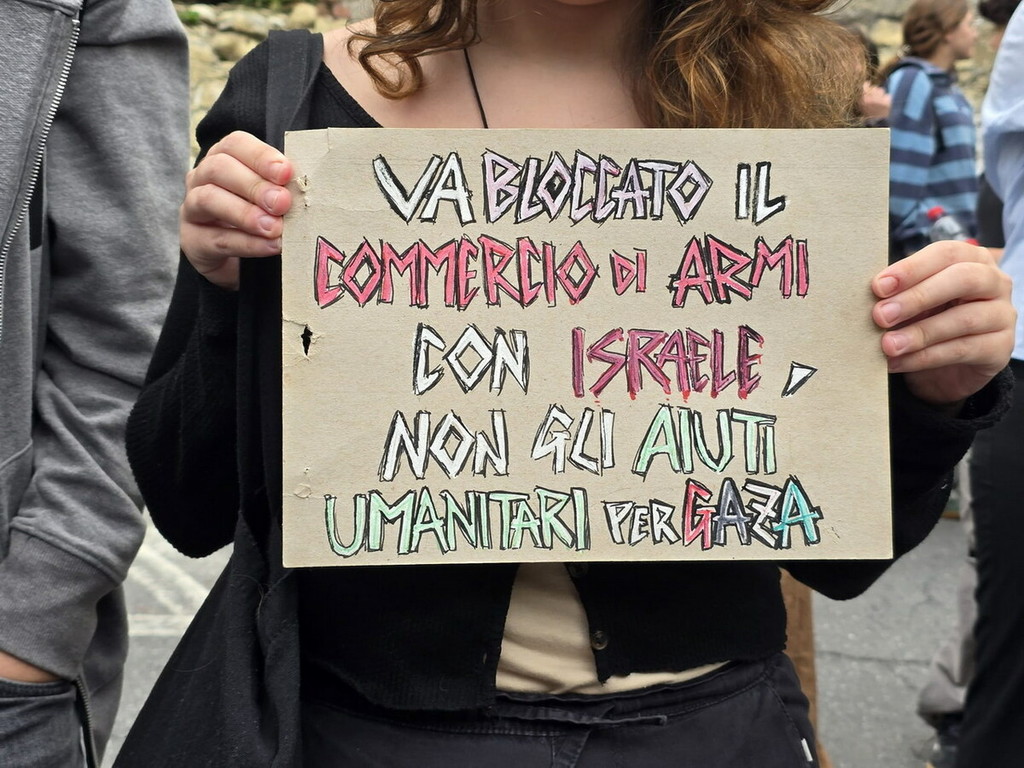 VA BLOCCATO IL
COMMERCIO DI ARMI
CON ISRAELE,
NON GLI AIUTI
UMANITARI PER GAZA